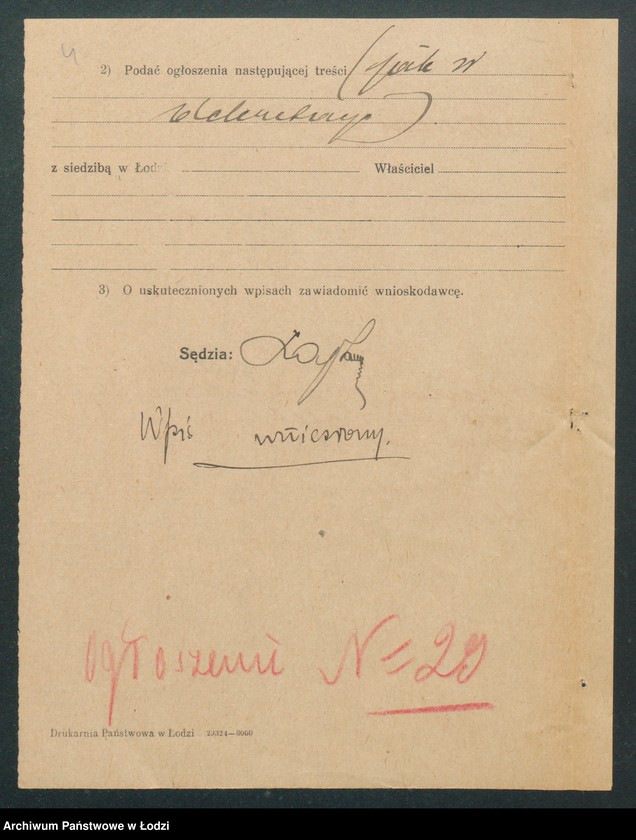 4
2) Podać ogłoszenia następującej treści (jak w
z siedzibą w Łodzi Właściciel
3) O uskutecznionych wpisach zawiadomić wnioskodawcę.
Sędzia:
Wpis uwiczony.
ogłoszenie N=29
Drukarnia Państwowa w Łodzi
Archiwum Państwowe w Łodzi